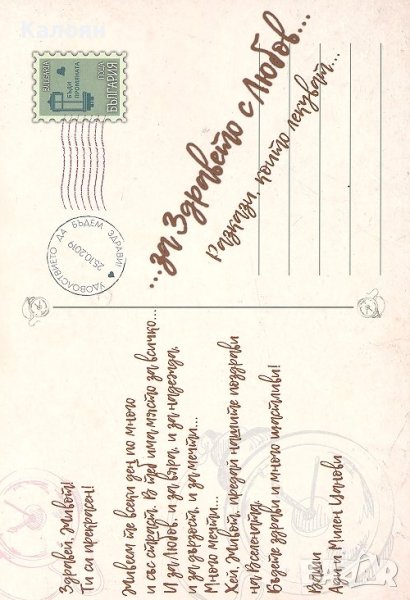 Калоян
BULGARIA
БЪДИ
ПРОМЯНАТА
БЪЛГАРИЯ
УДОВОЛСТВИЕТО ДА БЪДЕМ ЗДРАВИ!
25.10.2019
...за Здравето с Любов...
Разкази, които лекуват...
Здравей, Живот!
Ти си прекрасен!
Живеем те всеки ден по много
и със страст. В теб има място за всичко...
И за любов, и за вяра, и за надежда,
и за дързост, и за мечти...
Много мечти...
Хей, Живот, предай нашите поздрави
на Вселената.
Бъдете здрави и много щастливи!
Ваши
Ани и Милен Цонови
BAZAR